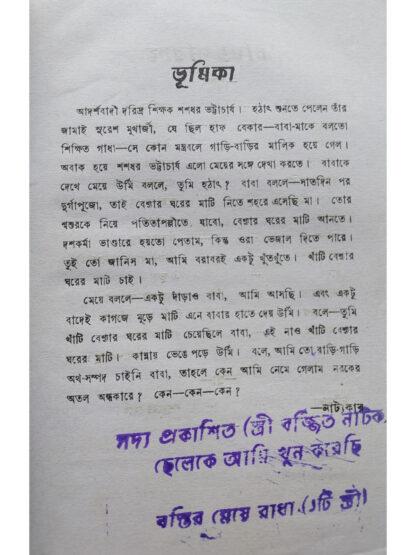 ভূমিকা
আদর্শবাদী দরিদ্র শিক্ষক শশধর ভট্টাচার্য। হঠাৎ শুনতে পেলেন তাঁর
জামাই সুরেশ মুখার্জী, যে ছিল হাফ বেকার—বাবা-মাকে বলতো
শিক্ষিত গাধা—সে কোন মন্ত্রবলে গাড়ি-বাড়ির মালিক হয়ে গেল।
অবাক হয়ে শশধর ভট্টাচার্য এলো মেয়ের সঙ্গে দেখা করতে। বাবাকে
দেখে মেয়ে উর্মি বললে, তুমি হঠাৎ? বাবা বললে—সাতদিন পর
দুর্গাপুজো, তাই বেশ্যার ঘরের মাটি নিতে শহরে এসেছি মা। তোর
শ্বশুরকে নিয়ে পতিতাপল্লীতে যাবো, বেশ্যার ঘরের মাটি আনতে।
দশকর্মা ভাণ্ডারে হয়তো পেতাম, কিন্তু ওরা ভেজাল দিতে পারে।
তুই তো জানিস মা, আমি বরাবরই একটু খুঁতখুঁতে। খাঁটি বেশ্যার
ঘরের মাটি চাই।
মেয়ে বললে—একটু দাঁড়াও বাবা, আমি আসছি। এবং একটু
বাদেই কাগজে মুড়ে মাটি এনে বাবার হাতে দেয় উর্মি। বলে—তুমি
খাঁটি বেশ্যার ঘরের মাটি চেয়েছিলে বাবা, এই নাও খাঁটি বেশ্যার
ঘরের মাটি। কান্নায় ভেঙে পড়ে উর্মি। বলে, আমি তো বাড়ি-গাড়ি
অর্থ-সম্পদ চাইনি বাবা, তাহলে কেন আমি নেমে গেলাম নরকের
অতল অন্ধকারে? কেন—কেন—কেন?
—নাট্যকার
সদ্য প্রকাশিত (স্ত্রী বর্জিত নাটক
ছেলেকে আমি খুন করেছি
বস্তির মেয়ে রাধা (১টি স্ত্রী)